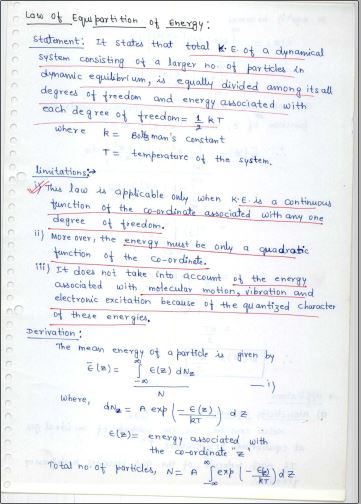 Law of Equipartition of Energy:
Statement: It states that total K.E. of a dynamical
system consisting of a larger no. of particles in
dynamic equilibrium, is equally divided among its all
degrees of freedom and energy associated with
each degree of freedom = 1/2 kT
where k = Boltzman's constant
T = temperature of the system.
limitations:→
i) This law is applicable only when K.E. is a continuous
function of the co-ordinate associated with any one
degree of freedom.
ii) More over, the energy must be only a quadratic
function of the co-ordinate.
iii) It does not take into account of the energy
associated with molecular motion, vibration and
electronic excitation because of the quantized character
of these energies.
Derivation:
The mean energy of a particle is given by
Ē(z) = ∫_{-∞}^{∞} ε(z) dN_z / N —i)
where, dN_z = A exp(-ε(z)/kT) dz
ε(z) = energy associated with
the co-ordinate "z"
Total no. of particles, N = A ∫_{-∞}^{∞} exp(-ε(z)/kT) dz